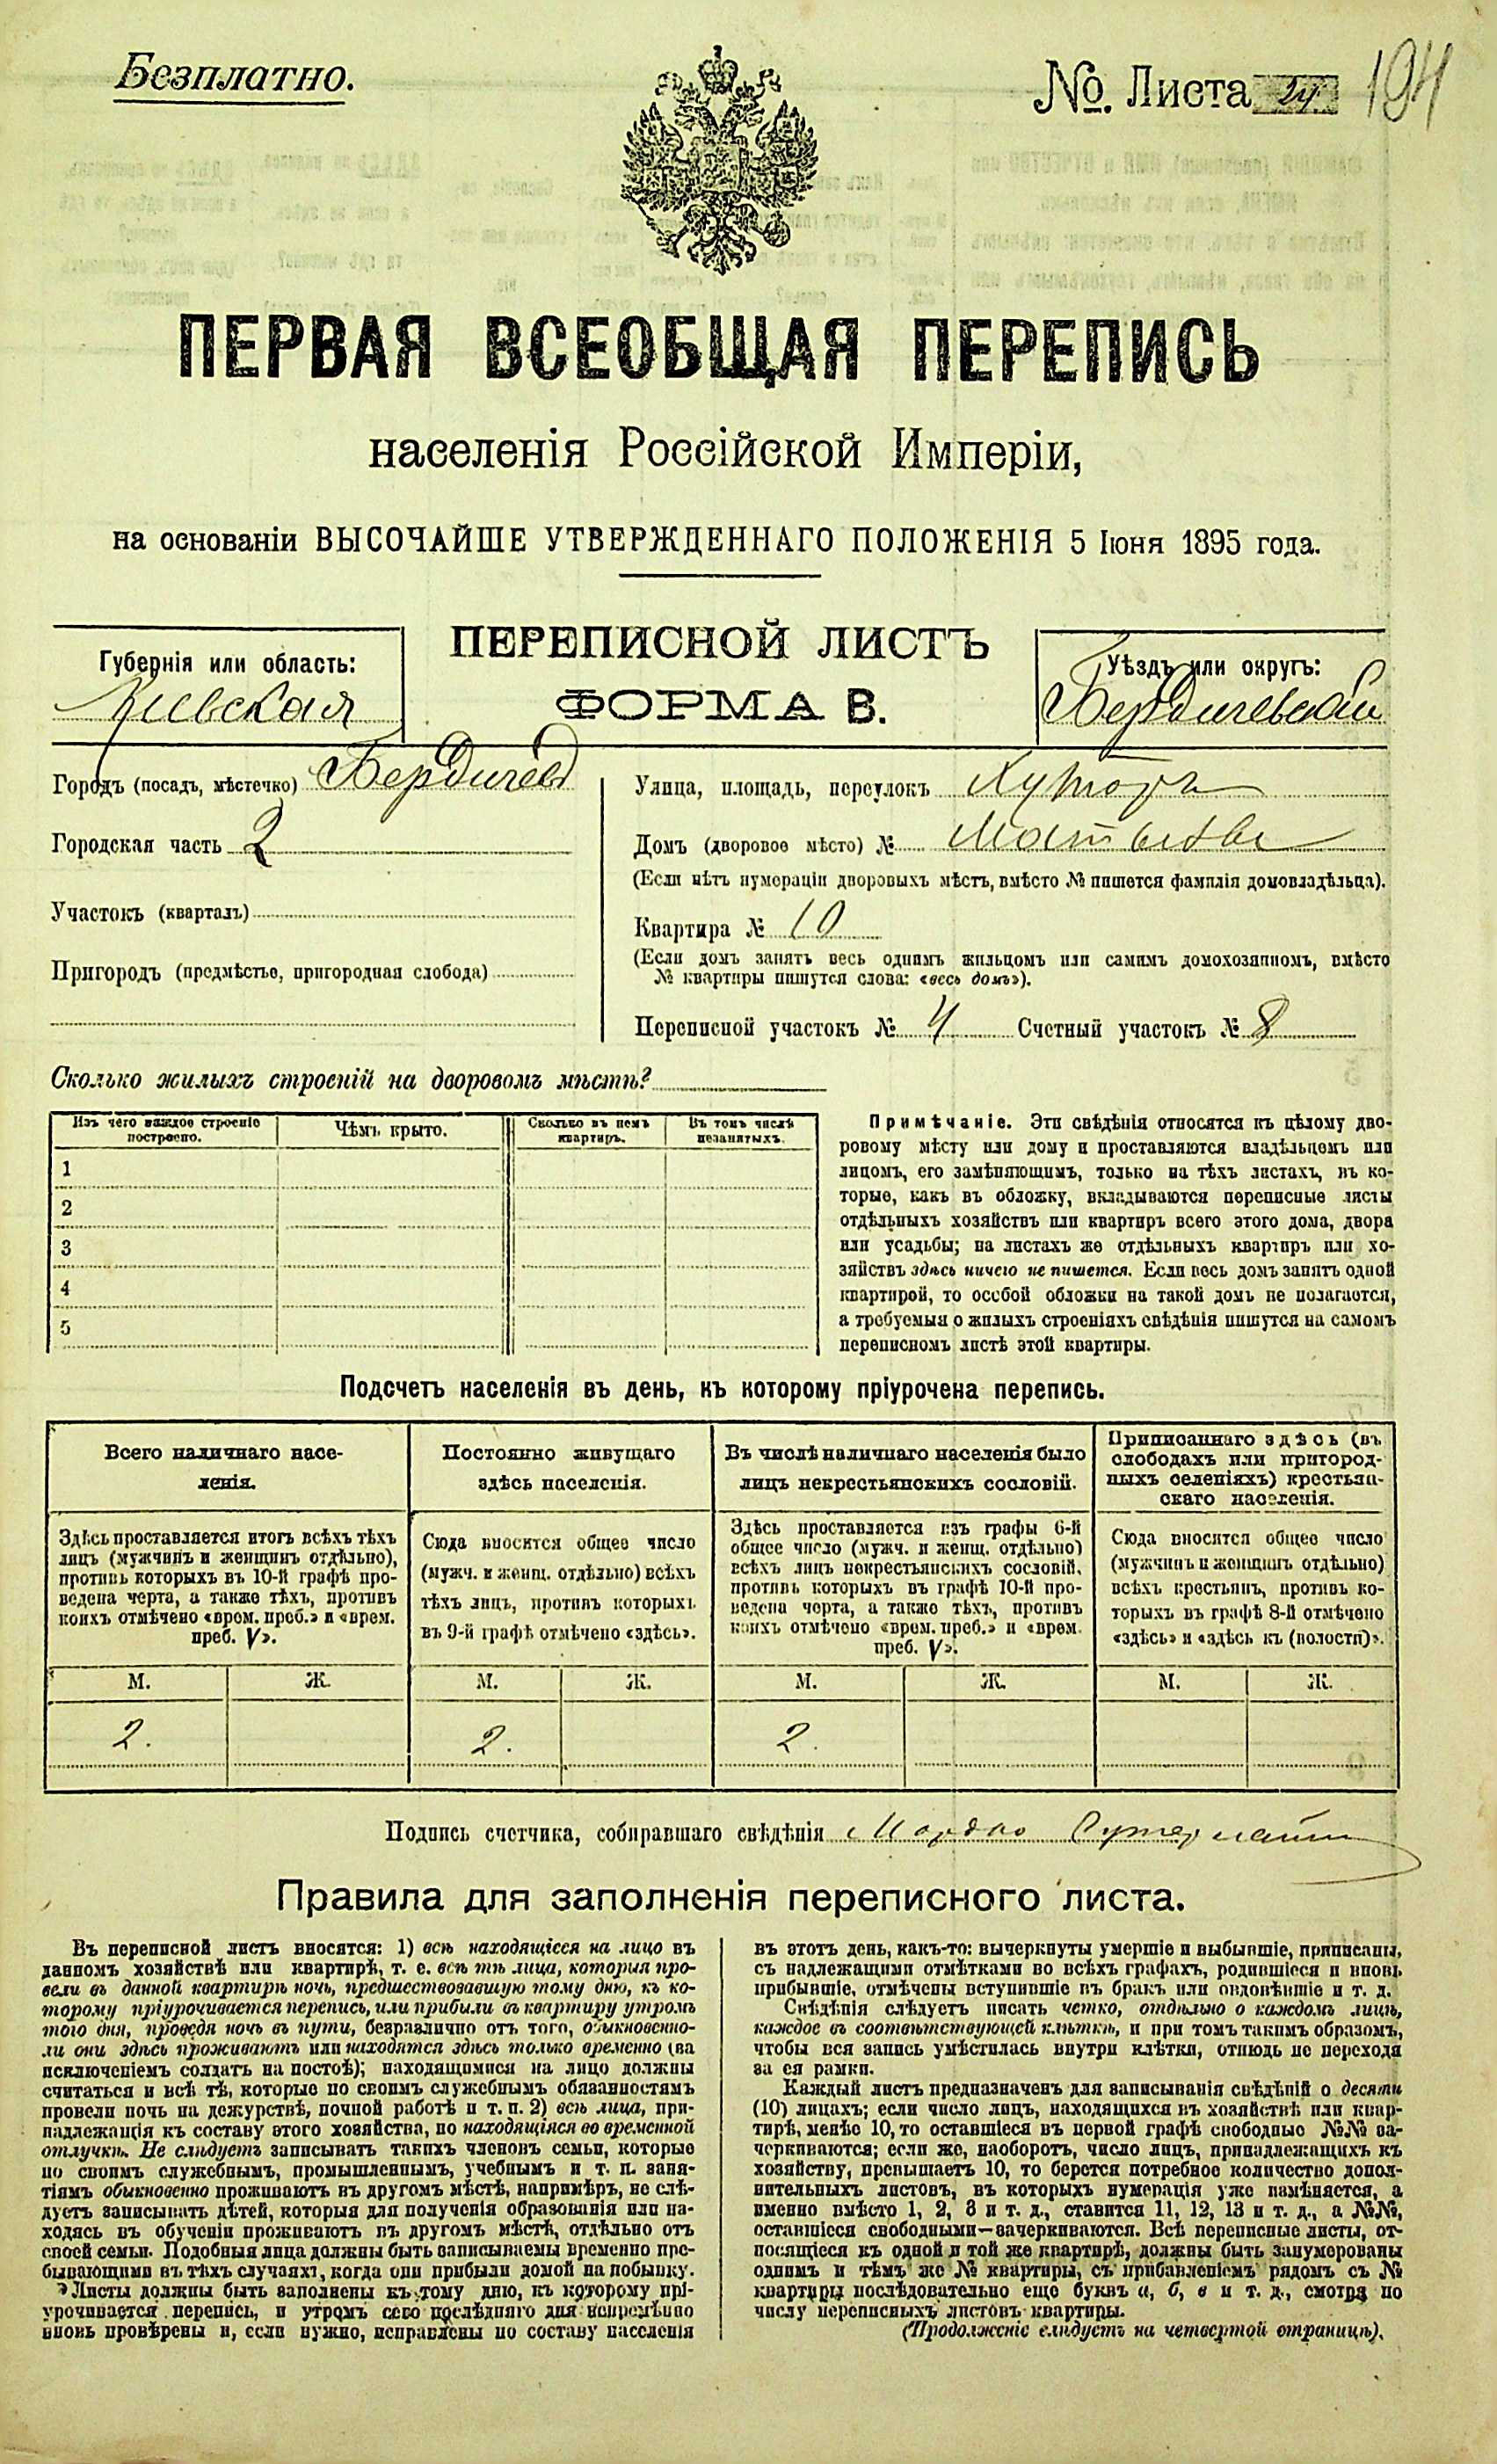 Безплатно.
№. Листа 194
ПЕРВАЯ ВСЕОБЩАЯ ПЕРЕПИСЬ
населенія Россійской Имперіи,
на основаніи ВЫСОЧАЙШЕ УТВЕРЖДЕННАГО ПОЛОЖЕНІЯ 5 Іюня 1895 года.
ПЕРЕПИСНОЙ ЛИСТЪ
ФОРМА В.
Губернія или область:
Кіевская
Уѣздъ или округъ:
Бердичевскій
Городъ (посадъ, мѣстечко) Бердичевъ
Городская часть 2
Участокъ (кварталъ)
Пригородъ (предмѣстье, пригородная слобода)
Улица, площадь, переулокъ Хуторъ
Домъ (дворовое мѣсто) №
(Если нѣтъ нумераціи дворовыхъ мѣстъ, вмѣсто № пишется фамилія домовладѣльца).
Квартира № 10
(Если домъ занятъ весь однимъ жильцомъ или самимъ домохозяиномъ, вмѣсто
№ квартиры пишутся слова: «весь домъ»).
Переписной участокъ № 4 Счетный участокъ № 8
Сколько жилыхъ строеній на дворовомъ мѣстѣ?
Изъ чего каждое строеніе
построено.
Чѣмъ крыто.
Сколько въ немъ
квартиръ.
Въ томъ числѣ
незанятыхъ.
1
2
3
4
5
Примѣчаніе. Эти свѣдѣнія относятся къ цѣлому дво-
ровому мѣсту или дому и проставляются владѣльцемъ или
лицомъ, его замѣняющимъ, только на тѣхъ листахъ, въ ко-
торые, какъ въ обложку, вкладываются переписные листы
отдѣльныхъ хозяйствъ или квартиръ всего этого дома, двора
или усадьбы; на листахъ же отдѣльныхъ квартиръ или хо-
зяйствъ здѣсь ничего не пишется. Если весь домъ занятъ одной
квартирой, то особой обложки на такой домъ не полагается,
а требуемыя о жилыхъ строеніяхъ свѣдѣнія пишутся на самомъ
переписномъ листѣ этой квартиры.
Подсчетъ населенія въ день, къ которому пріурочена перепись.
Всего наличнаго насе-
ленія.
Постоянно живущаго
здѣсь населенія.
Въ числѣ наличнаго населенія было
лицъ некрестьянскихъ сословій.
Приписаннаго здѣсь (въ
слободахъ или пригород-
ныхъ селеніяхъ) крестьян-
скаго населенія.
Здѣсь проставляется итогъ всѣхъ тѣхъ
лицъ (мужчинъ и женщинъ отдѣльно),
противъ которыхъ въ 10-й графѣ про-
ведена черта, а также тѣхъ, противъ
коихъ отмѣчено «врем. преб.» и «врем.
преб. V».
Сюда вносится общее число
(мужч. и женщ. отдѣльно) всѣхъ
тѣхъ лицъ, противъ которыхъ
въ 9-й графѣ отмѣчено «здѣсь».
Здѣсь проставляется изъ графы 6-й
общее число (мужч. и женщ. отдѣльно)
всѣхъ лицъ некрестьянскихъ сословій,
противъ которыхъ въ графѣ 10-й про-
ведена черта, а также тѣхъ, противъ
коихъ отмѣчено «врем. преб.» и «врем.
преб. V».
Сюда вносится общее число
(мужчинъ и женщинъ отдѣльно)
всѣхъ крестьянъ, противъ ко-
торыхъ въ графѣ 8-й отмѣчено
«здѣсь» и «здѣсь къ (волости)».
М. Ж. М. Ж. М. Ж. М. Ж.
2. 2. 2.
Подпись счетчика, собиравшаго свѣдѣнія Мордко
Правила для заполненія переписного листа.
Въ переписной листъ вносятся: 1) всѣ находящіеся на лицо въ
данномъ хозяйствѣ или квартирѣ, т. е. всѣ тѣ лица, которыя про-
вели въ данной квартирѣ ночь, предшествовавшую тому дню, къ ко-
торому пріурочивается перепись, или прибыли въ квартиру утромъ
того дня, проведя ночь въ пути, безразлично отъ того, обыкновенно-
ли они здѣсь проживаютъ или находятся здѣсь только временно (за
исключеніемъ солдатъ на постоѣ); находящимися на лицо должны
считаться и всѣ тѣ, которые по своимъ служебнымъ обязанностямъ
провели ночь на дежурствѣ, ночной работѣ и т. п. 2) всѣ лица, при-
надлежащія къ составу этого хозяйства, но находящіяся во временной
отлучкѣ. Не слѣдуетъ записывать такихъ членовъ семьи, которые
по своимъ служебнымъ, промышленнымъ, учебнымъ и т. п. заня-
тіямъ обыкновенно проживаютъ въ другомъ мѣстѣ, напримѣръ, не слѣ-
дуетъ записывать дѣтей, которыя для полученія образованія или на-
ходясь въ обученіи проживаютъ въ другомъ мѣстѣ, отдѣльно отъ
своей семьи. Подобныя лица должны быть записываемы временно пре-
бывающими въ тѣхъ случаяхъ, когда они прибыли домой на побывку.
Листы должны быть заполнены къ тому дню, къ которому прі-
урочивается перепись, и утромъ сего послѣдняго дня непремѣнно
вновь провѣрены и, если нужно, исправлены по составу населенія
въ этотъ день, какъ-то: вычеркнуты умершіе и выбывшіе, приписаны,
съ надлежащими отмѣтками во всѣхъ графахъ, родившіеся и вновь
прибывшіе, отмѣчены вступившіе въ бракъ или овдовѣвшіе и т. д.
Свѣдѣнія слѣдуетъ писать четко, отдѣльно о каждомъ лицѣ,
каждое въ соотвѣтствующей клѣткѣ, и при томъ такимъ образомъ,
чтобы вся запись умѣстилась внутри клѣтки, отнюдь не переходя
за ея рамки.
Каждый листъ предназначенъ для записыванія свѣдѣній о десяти
(10) лицахъ; если число лицъ, находящихся въ хозяйствѣ или квар-
тирѣ, менѣе 10, то оставшіеся въ первой графѣ свободные №№ за-
черкиваются; если же, наоборотъ, число лицъ, принадлежащихъ къ
хозяйству, превышаетъ 10, то берется потребное количество допол-
нительныхъ листовъ, въ которыхъ нумерація уже измѣняется, а
именно вмѣсто 1, 2, 3 и т. д., ставится 11, 12, 13 и т. д., а №№,
оставшіеся свободными—зачеркиваются. Всѣ переписные листы, от-
носящіеся къ одной и той же квартирѣ, должны быть занумерованы
однимъ и тѣмъ же № квартиры, съ прибавленіемъ рядомъ съ №
квартиры послѣдовательно еще буквъ а, б, в и т. д., смотря по
числу переписныхъ листовъ квартиры.
(Продолженіе слѣдуетъ на четвертой страницѣ).